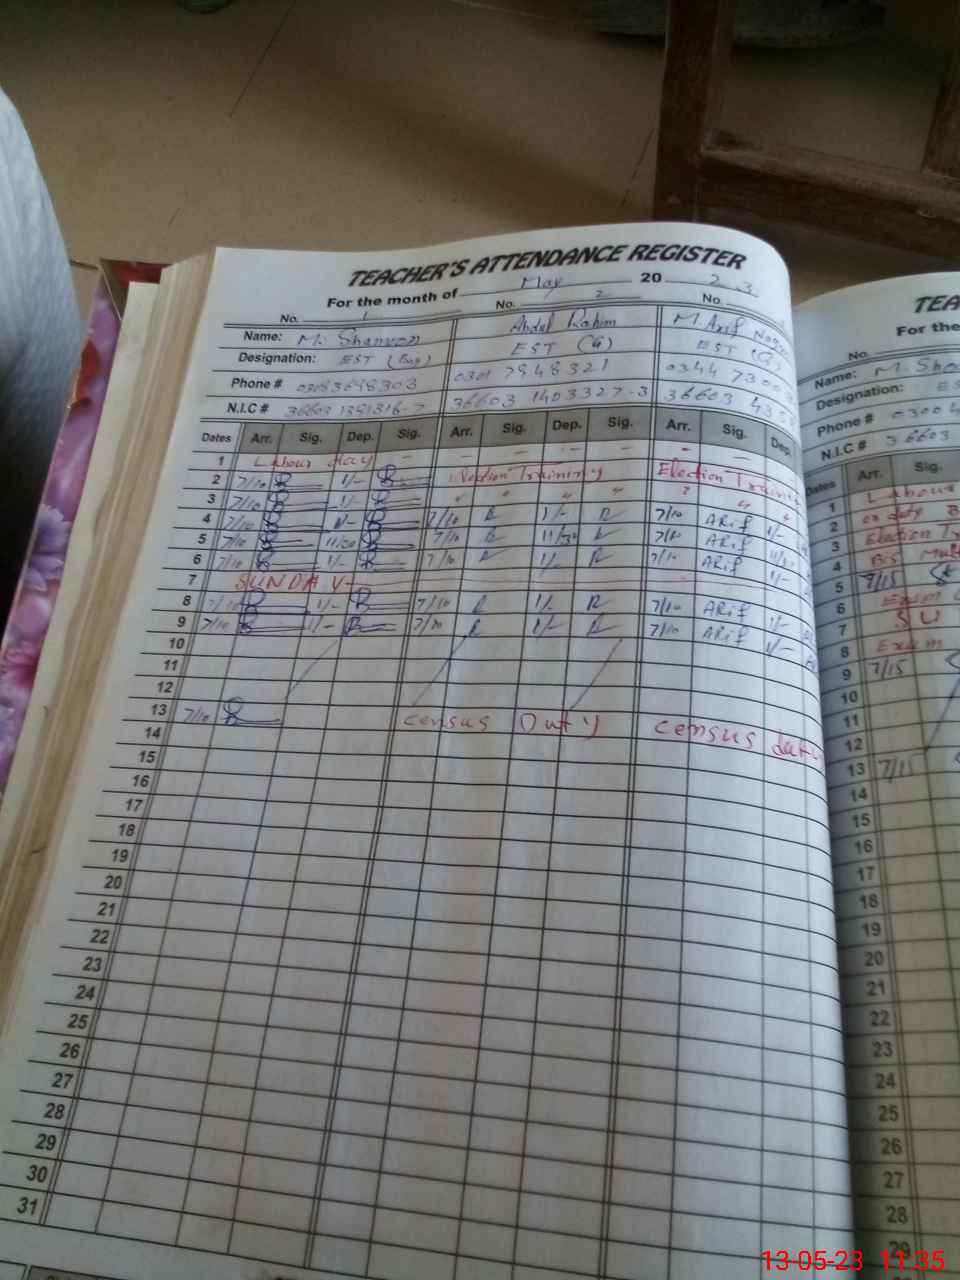 TEACHER'S ATTENDANCE REGISTER
For the month of May 20 23
No. 1 No. 2 No.
Name: M. Abdul Rahim M. Arif
Designation: EST (Eng) EST (G) EST (G)
Phone # 03083698303 0301 7948321 0344 7300
N.I.C # 36603 1391816-7 36603 1403327-3 36603 43
Dates Arr. Sig. Dep. Sig. Arr. Sig. Dep. Sig. Arr. Sig. Dep.
1 Labour day - - - - - - -
2 7/10 1/- Election Training Election Training
3 7/10 1/- " " " " " " "
4 7/10 1/- 7/10 R 1/- R 7/10 ARif 1/-
5 7/10 11/30 7/10 R 11/30 R 7/10 ARif
6 7/10 1/- 7/10 R 1/- R 7/10 ARif 1/-
7 SUNDAY
8 7/10 1/- 7/10 R 1/- R 7/10 ARif 1/-
9 7/10 1/- 7/10 R 1/- R 7/10 ARif 1/-
10
11
12
13 7/10 census Duty census duty
14
15
16
17
18
19
20
21
22
23
24
25
26
27
28
29
30
31
TEA
For the
No.
Name: M. Sha
Designation: ES
Phone # 03004
N.I.C # 36603
Dates Arr. Sig.
1 Labour
2 on duty
3 Election Tr
4
5 7/15
6 Exam
7 SU
8 Exam
9 7/15
10
11
12
13 7/15
14
15
16
17
18
19
20
21
22
23
24
25
26
27
28
29
13-05-23 11:35